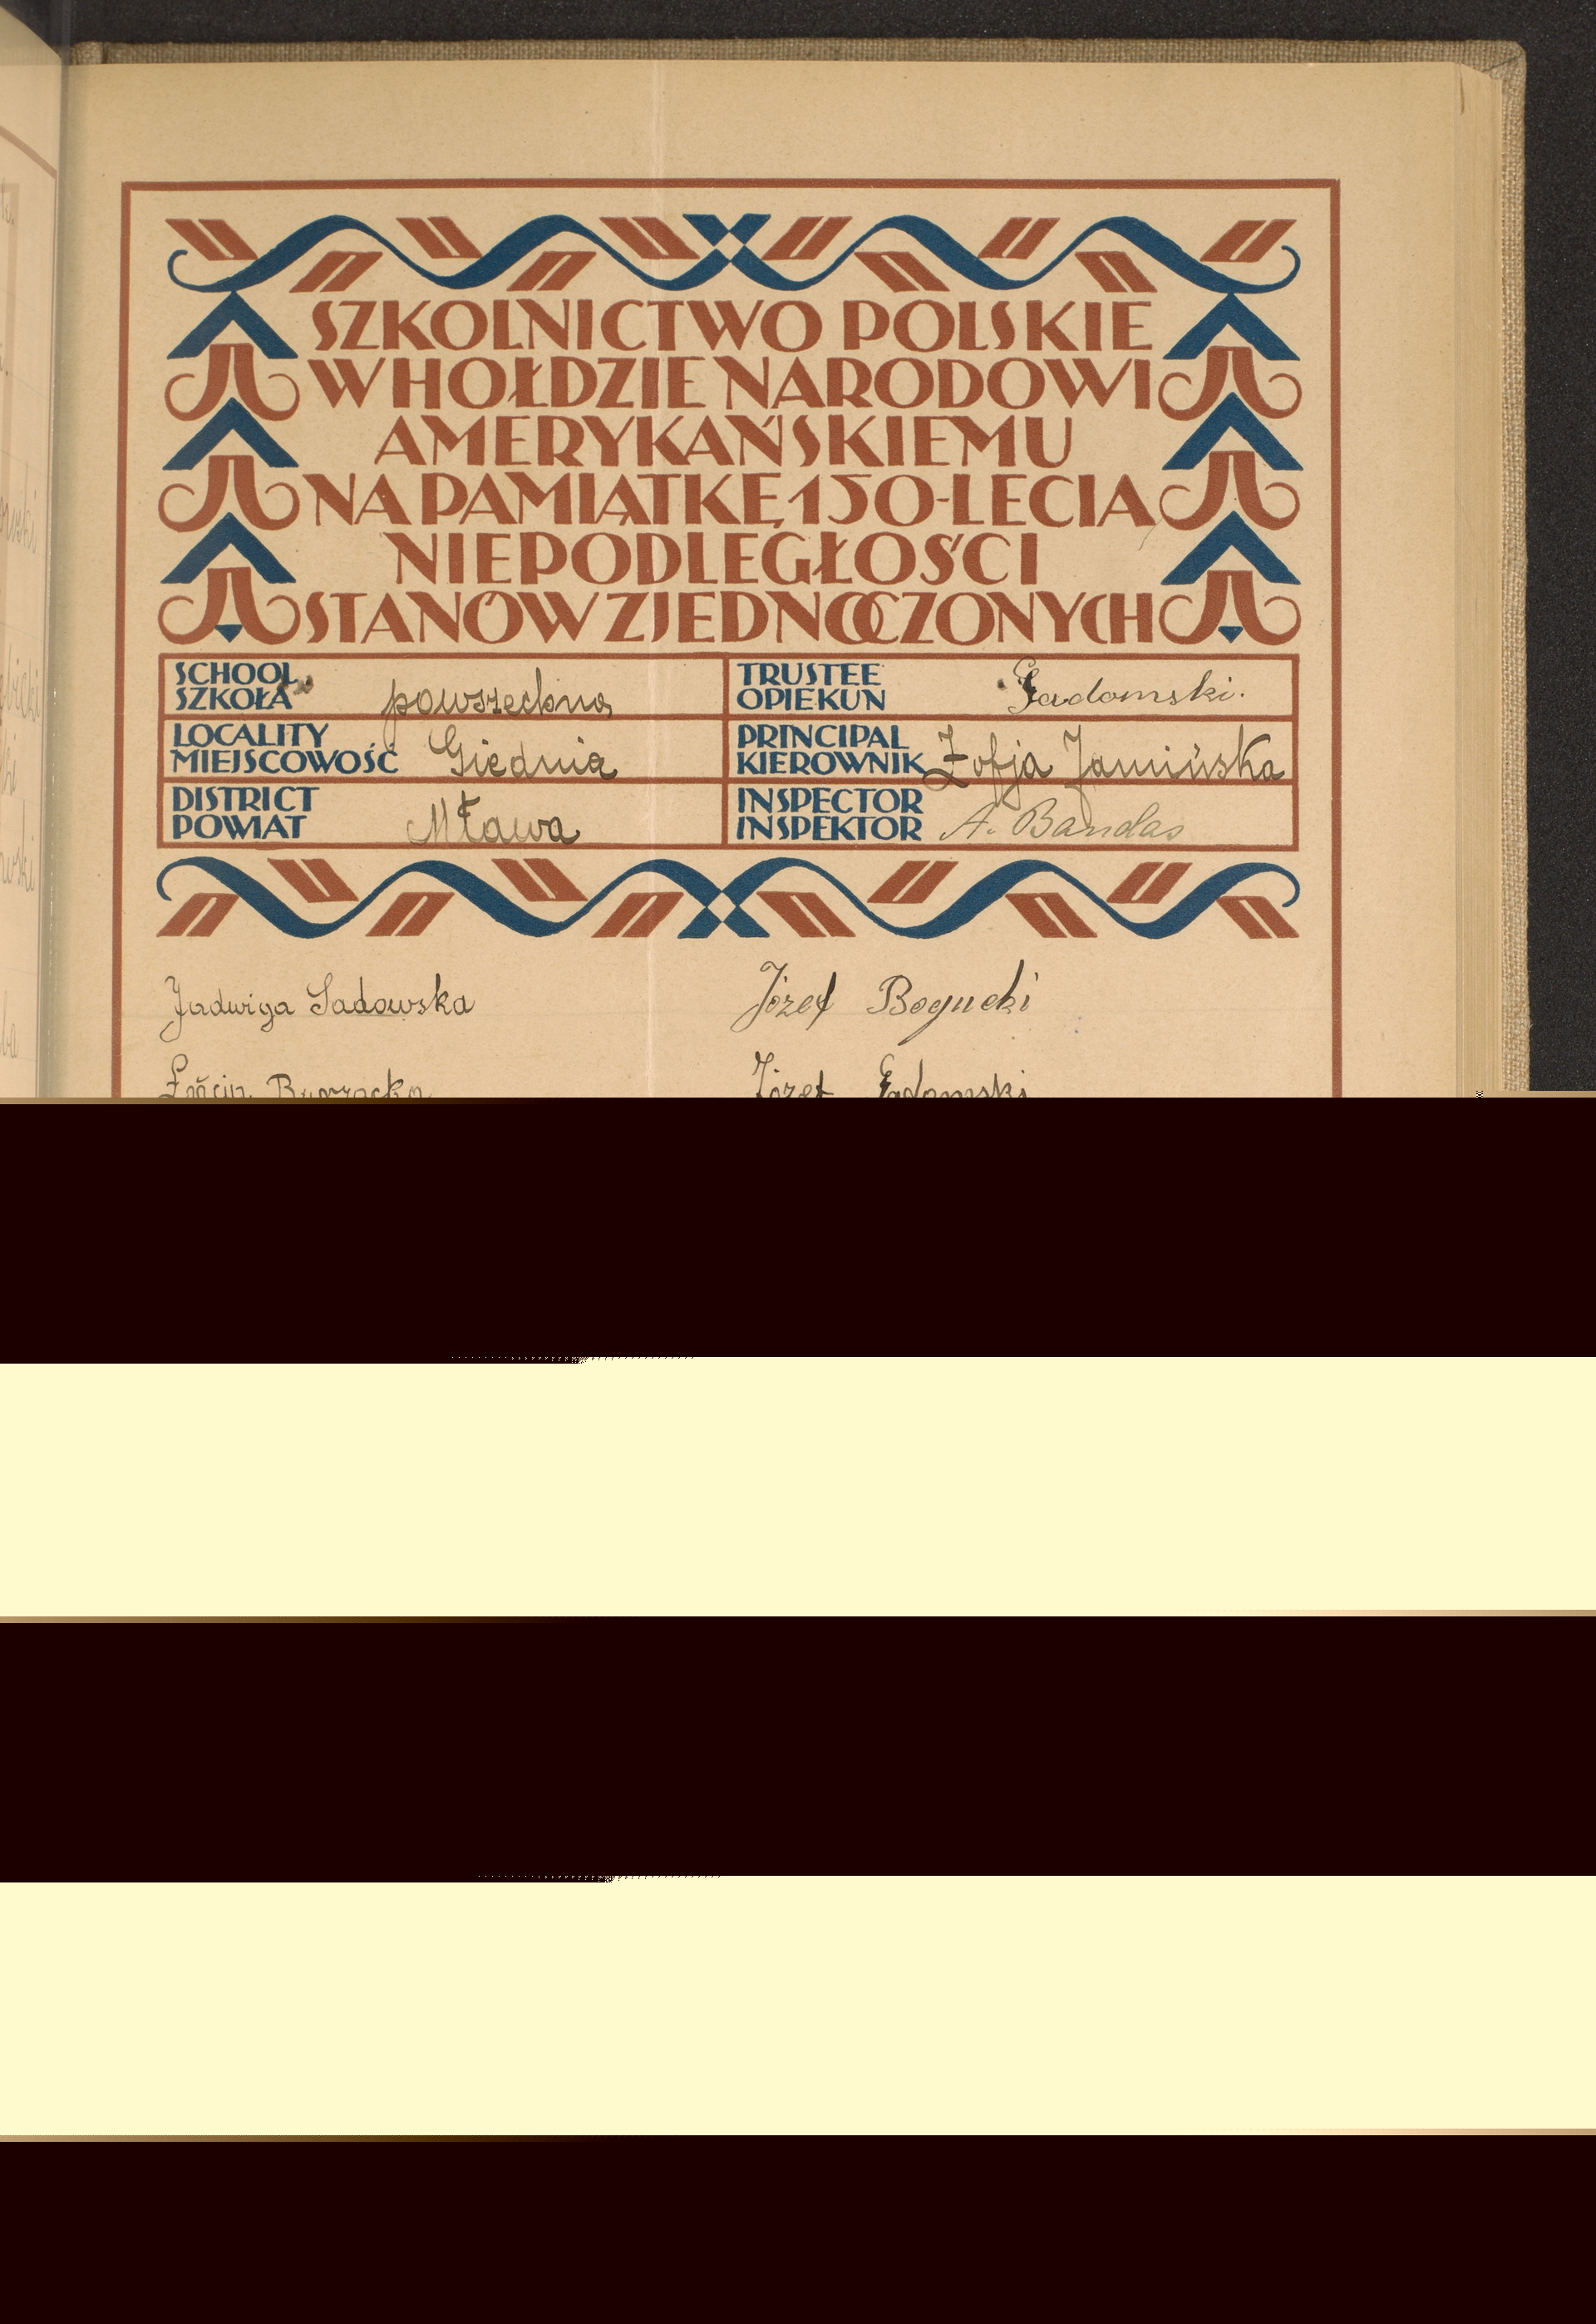 SZKOLNICTWO POLSKIE
W HOŁDZIE NARODOWI
AMERYKAŃSKIEMU
NA PAMIĄTKĘ 150-LECIA
NIEPODLEGŁOŚCI
STANÓW ZJEDNOCZONYCH
SCHOOL
SZKOŁA powszechna
TRUSTEE
OPIEKUN Gadomski.
LOCALITY
MIEJSCOWOŚĆ Giednia
PRINCIPAL
KIEROWNIK Zofja Jamińska
DISTRICT
POWIAT Mława
INSPECTOR
INSPEKTOR A. Bandas
Jadwiga Sadowska
Józef Bogucki
Józef Gadomski